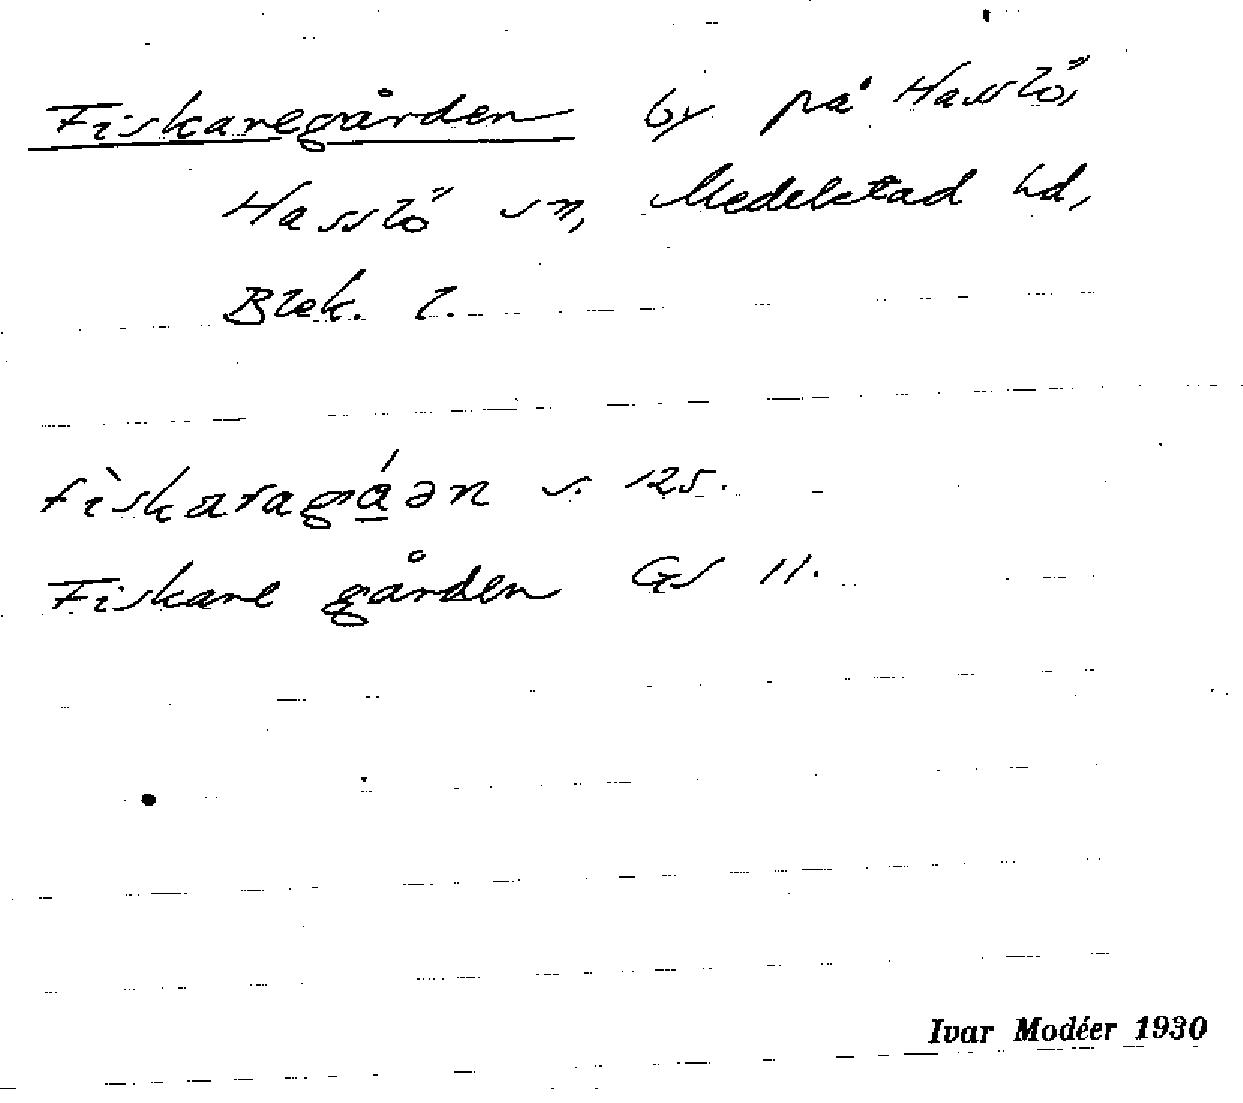 Fiskaregården by på Hasslö,
Hasslö sn, Medelstad hd,
Blek. l.
fìskaragá̱ən s. 125.
Fiskare gården GS 11.
Ivar Modéer 1930